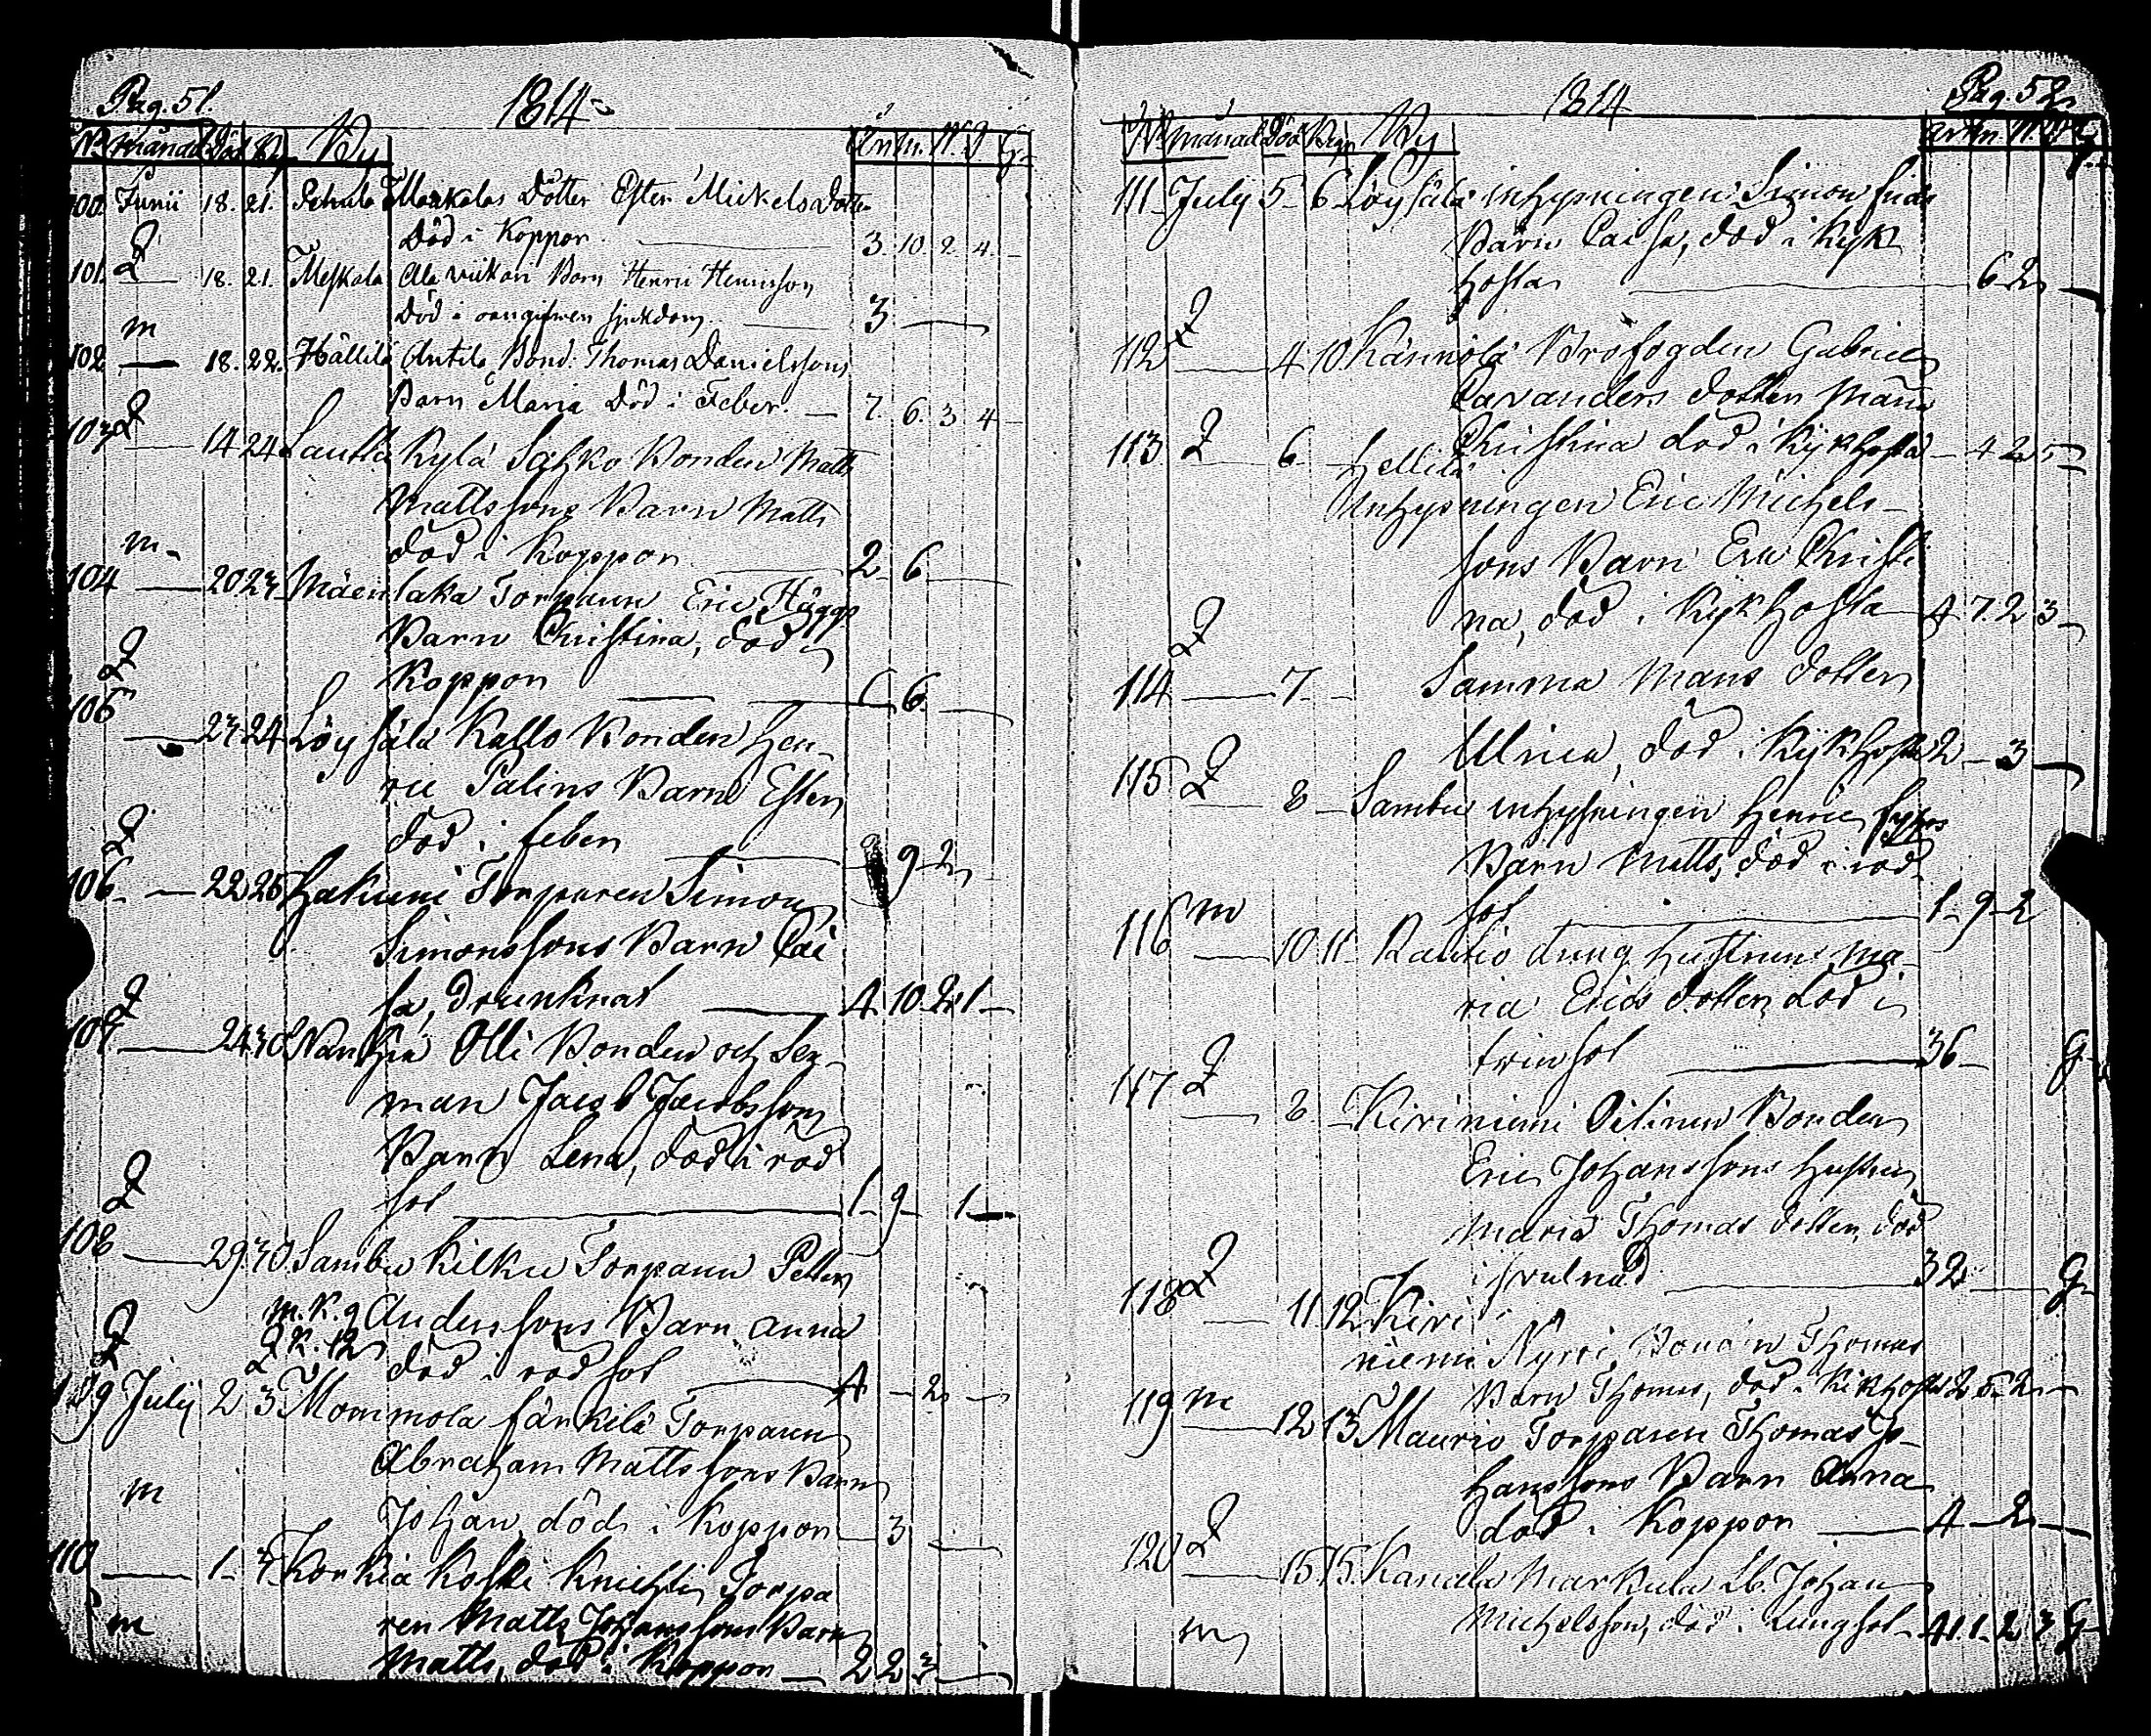 Pag. 51.
1814
No månad Död By År m. W. D G.
100. Junii 18. 21. Markolas Dotter Ester Mickels Dotter
Död i Koppor. 3. 10. 2. 4.
101. 18. 21. Meskala Ala viikari Barn Henric Henricsson
Död i oangifwen sjukdom 3.
m
102 18. 22. Hällilä Antila Bond. Thomas Danielssons
Barn Maria Död i Feber. 7. 6. 3 4
103 14 24 Kylä Bonden Matts
Mattssons Barn Matts
död i Koppor 2 6
m.
104 20 23 Torparen Eric Häggs
Barn Christina, död i
Koppor 6
105 23 24 Löysälä Kallo Bonden Hen-
ric Palins Barn Ester
död i feber 9 2
106. 22 25 Torparen Simon
Simonssons Barn Cai
sa, Drunknat 4 10. 2. 1
107 24 30 Olli Bonden och Sex-
man Jacob Jacobssons
Barn Lena, död i röd
sot 1 9 1
108 29. 30. Sambu Kilku Torparen Petter
m. K. 9 Anderssons Barn Anna
K. 12 död i rödsot 4 2
109 Julij 2 3 Mommola Torparen
Abraham Mattssons Barn
m
Johan, död i Koppor 3
110 1 3 Korkia Koski Torpa
ren Matts Johanssons Barn
m
Matts, död i Koppor 2 2 3
1814 Pag. 52
No månad Död Begr By År m. W. D G.
111 July 5 6 Löysälä inhysningen Simon
Barn Caisa, död i Kyk
hosta 6 2
112 4 10 Kännölä Brofogden Gabriel
Cavanders dotter Maria
Christina död i Kykhosta 4 2 5
113 6 Hellilä
Inhysningen Eric Michels-
sons Barn Eva Christi
na, död i Kykhosta 4 7. 2 3
114 7 Samma Mans dotter
Ulrica, död i Kykhosta 2 3
115 8 Sambu inhysningen Henric
Barn Matts, död i röd-
sot 1 9 2
116 m 10 11 Rautio Hustrun Ma-
ria Erics dotter, död i
36 G
117 8 Kiriniemi Bonden
Eric Johanssons Hustru
Maria Thomas dotter, död
i swulnad 32 G
118 11 12 Kiri
niemi Nyrri Bonden Thomas
Barn Thomas, död i Kikhosta 2 5 2
119 m 12 13 Maurio Torparen Thomas Jo-
hanssons Barn Anna
död i Koppor 4 2
120 15 15. Markula Johan
m
Michelsson, död i Lungsot 41. 1 2 3 G